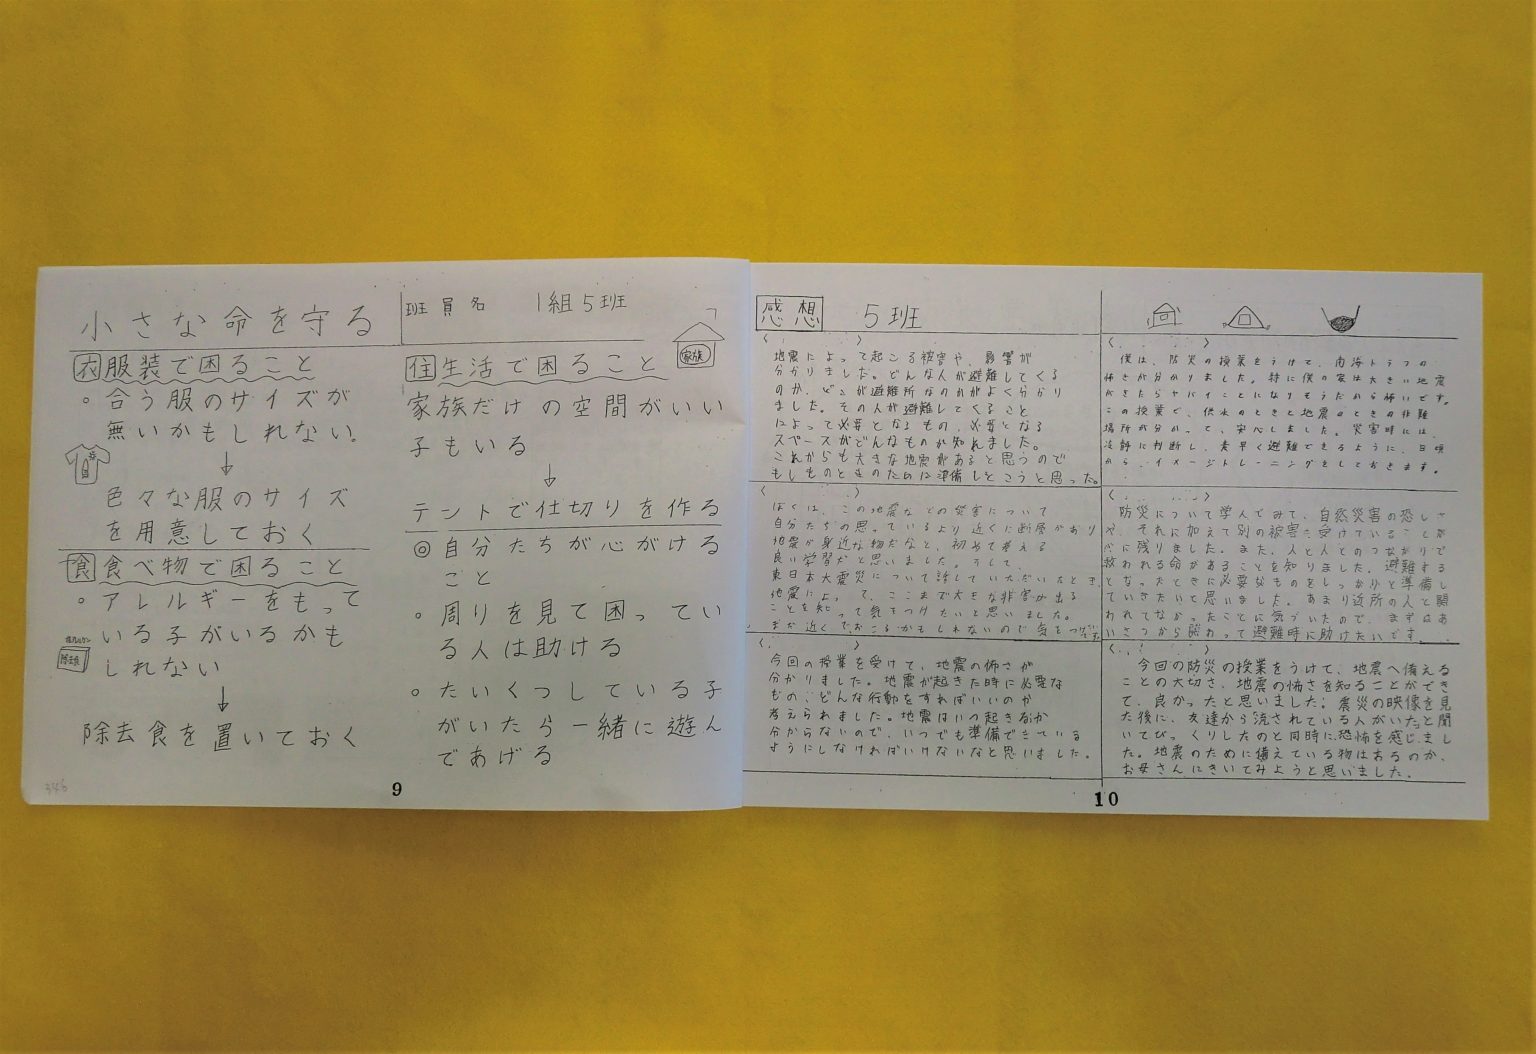 小さな命を守る
衣 服装で困ること
。合う服のサイズが
無いかもしれない。
↓
色々な服のサイズ
を用意しておく
食 食べ物で困ること
。アレルギーをもって
いる子がいるかも
しれない
↓
除去食を置いておく
班員名 1組5班
家族
住 生活で困ること
家族だけの空間がいい
子もいる
↓
テントで仕切りを作る
◎自分たちが心がける
こと
。周りを見て困ってい
る人は助ける
。たいくつしている子
がいたら一緒に遊ん
であげる
9
感想 5班
地震によって起こる被害や、影響が
分かりました。どんな人が避難してくる
のか、どこが避難所なのかがよく分かり
ました。その人が避難してくること
によって必要となるもの、必要となる
スペースがどんなものか知れました。
これからも大きな地震があると思うので
もしものときのために準備しとこうと思った。
ぼくは、この地震などの災害について
自分たちの思っているより近くに断層があり
地震が身近な物だなと、初めて考える
良い学習だと思いました。そして、
東日本大震災について話していただいたとき、
地震によって、ここまで大きな被害が出る
ことを知って気をつけたいと思いました。
また近くでおこるかもしれないので気をつけ
今回の授業を受けて、地震の怖さが
分かりました。地震が起きた時に必要な
もの、どんな行動をすればいいのか
考えられました。地震はいつ起きるか
分からないので、いつでも準備できている
ようにしなければいけないなと思いました。
僕は、防災の授業をうけて、南海トラフの
怖さが分かりました。特に僕の家は大きい地震
がきたらヤバイことになりそうだから怖いです。
この授業で、洪水のときと地震のときの非難
場所が分かって、安心しました。災害時には、
冷静に判断し、素早く避難できるように、日頃
から、イメージトレーニングをしておきます。
防災について学んでみて、自然災害の恐しさ
や、それに加えて別の被害に受けていることが
心に残りました。また、人と人とのつながりで
救われる命があることを知りました。避難する
となったときに必要なものをしっかりと準備し
ていきたいと思いました。あまり近所の人と関
われてなかったことに気づいたので、まずはあ
いさつから関わって避難時に助けたいです。
今回の防災の授業をうけて、地震へ備える
ことの大切さ、地震の怖さを知ることができ
て、良かったと思いました。震災の映像を見
た後に、友達から流されている人がいたと聞
いてびっくりしたのと同時に恐怖を感じまし
た。地震のために備えている物はあるのか、
お母さんにきいてみようと思いました。
10